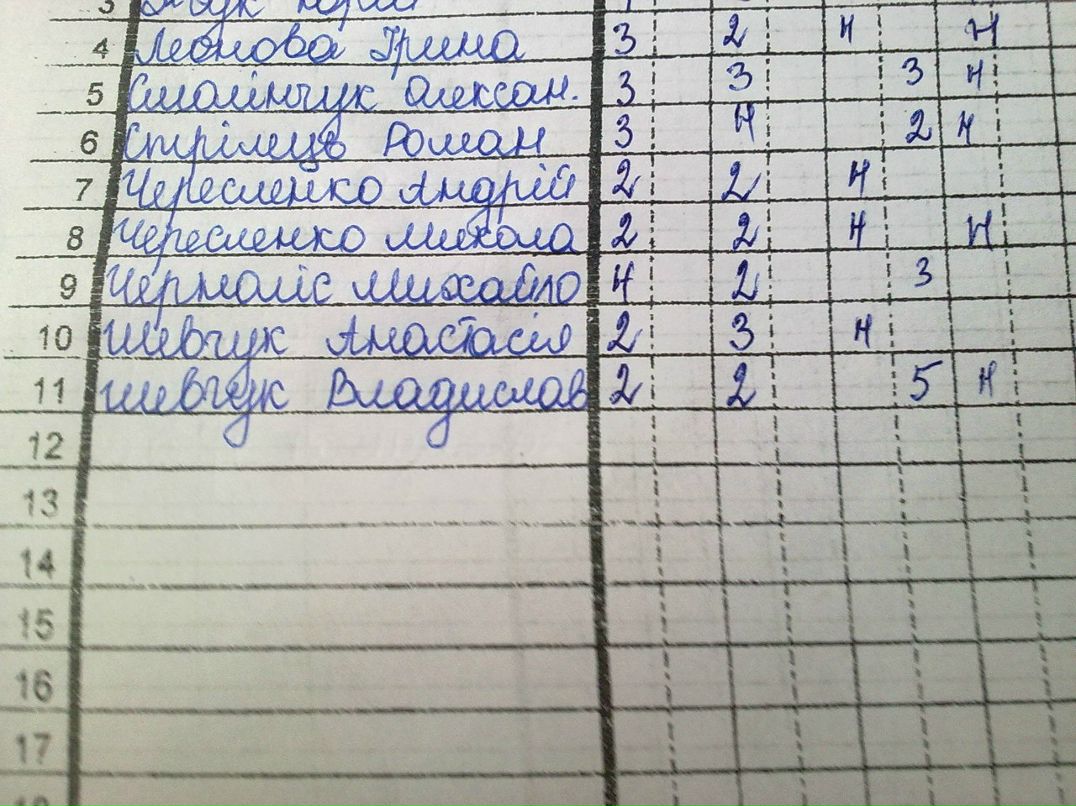 3
4 Леонова Ірина 3 2 н н
5 Смолінчук Олексан. 3 3 3 н
6 Стрілець Роман 3 н 2 н
7 Чересленко Андрій 2 2 н
8 Чересленко Микола 2 2 н н
9 Чорноліс Михайло н 2 3
10 Шевчук Анастасія 2 3 н
11 Шевчук Владислав 2 2 5 н
12
13
14
15
16
17